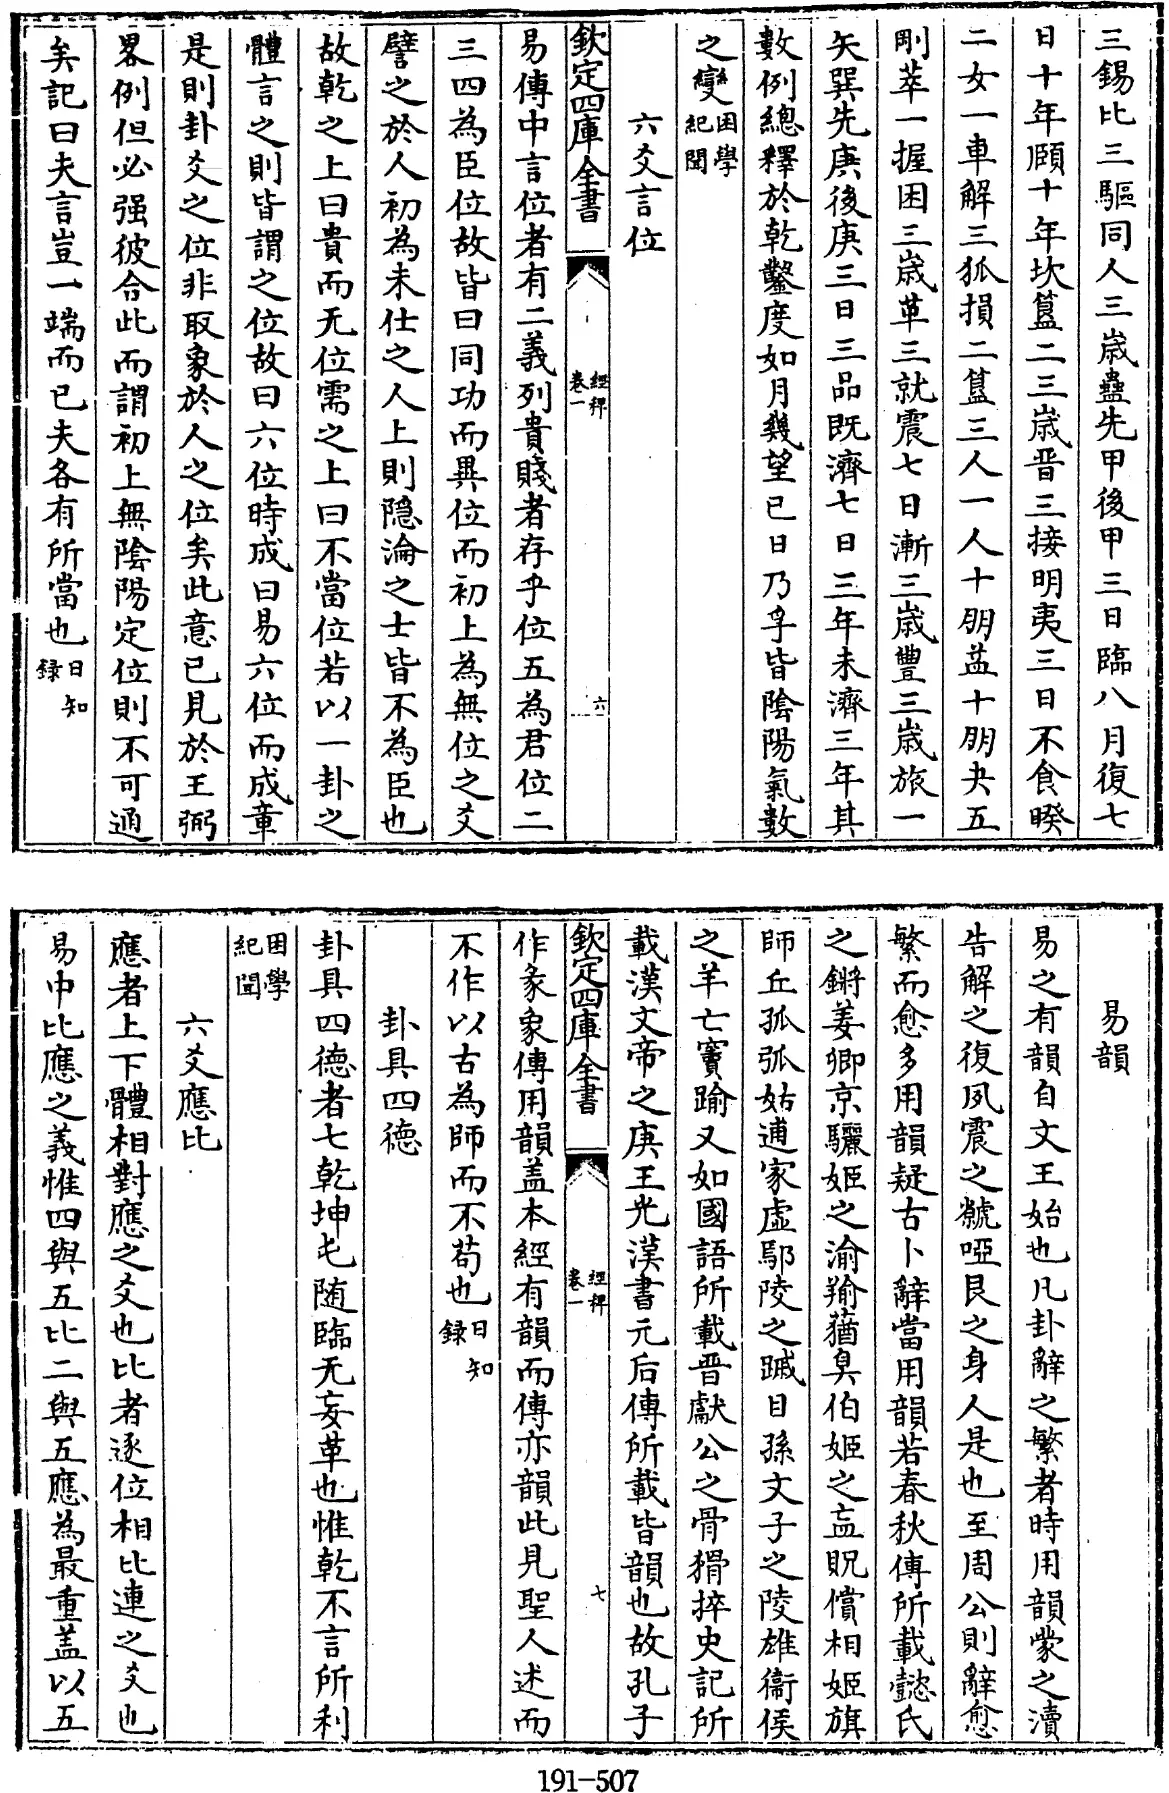 三錫比三驅同人三歲蠱先甲後甲三日臨八月復七
日十年頤十年坎簋二三歲晉三接明夷三日不食睽
二女一車解三狐損二簋三人一人十朋益十朋夬五
剛萃一握困三歲革三就震七日漸三歲豐三歲旅一
矢巽先庚後庚三日三品既濟七日三年未濟三年其
數例總釋於乾鑿度如月幾望已日乃孚皆陰陽氣數
之變困學紀聞
六爻言位
欽定四庫全書 經稗卷一 六
易傳中言位者有二義列貴賤者存乎位五為君位二
三四為臣位故皆曰同功而異位而初上為無位之爻
譬之於人初為未仕之人上則隱淪之士皆不為臣也
故乾之上曰貴而无位需之上曰不當位若以一卦之
體言之則皆謂之位故曰六位時成曰易六位而成章
是則卦爻之位非取象於人之位矣此意已見於王弼
畧例但必强彼合此而謂初上無陰陽定位則不可通
矣記曰夫言豈一端而已夫各有所當也日知錄
易韻
易之有韻自文王始也凡卦辭之繁者時用韻蒙之瀆
告解之復夙震之虩啞艮之身人是也至周公則辭愈
繁而愈多用韻疑古卜辭當用韻若春秋傳所載懿氏
之鏘姜卿京驪姬之渝羭蕕臭伯姬之衁貺償相姬旗
師丘孤弧姑逋家虛鄢陵之蹙目孫文子之陵雄衛侯
之羊亡竇踰又如國語所載晉獻公之骨猾捽史記所
載漢文帝之庚王光漢書元后傳所載皆韻也故孔子
欽定四庫全書 經稗卷一 七
作彖象傳用韻盖本經有韻而傳亦韻此見聖人述而
不作以古為師而不苟也日知錄
卦具四德
卦具四德者七乾坤屯随臨无妄革也惟乾不言所利
困學紀聞
六爻應比
應者上下體相對應之爻也比者逐位相比連之爻也
易中比應之義惟四與五比二與五應為最重盖以五
191-507